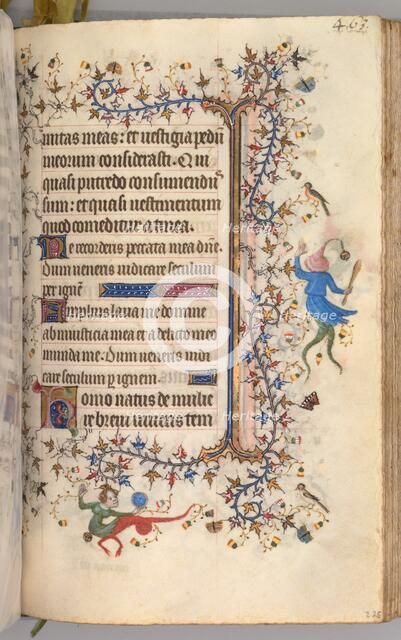 467
mitas meas: et vestigia pedum
meorum considerasti. Qui
quasi putredo consumendus
sum: et quasi vestimentum
quod comeditur a tinea.
Ne recorderis peccata mea dñe.
Dum veneris iudicare seculum
per ignem
Amplius lava me domine
ab iniusticia mea et a delicto meo
munda me. Dum veneris iudi
care seculum per ignem.
Homo natus de mulie
re brevi vivens tem
Heritage
Images
225